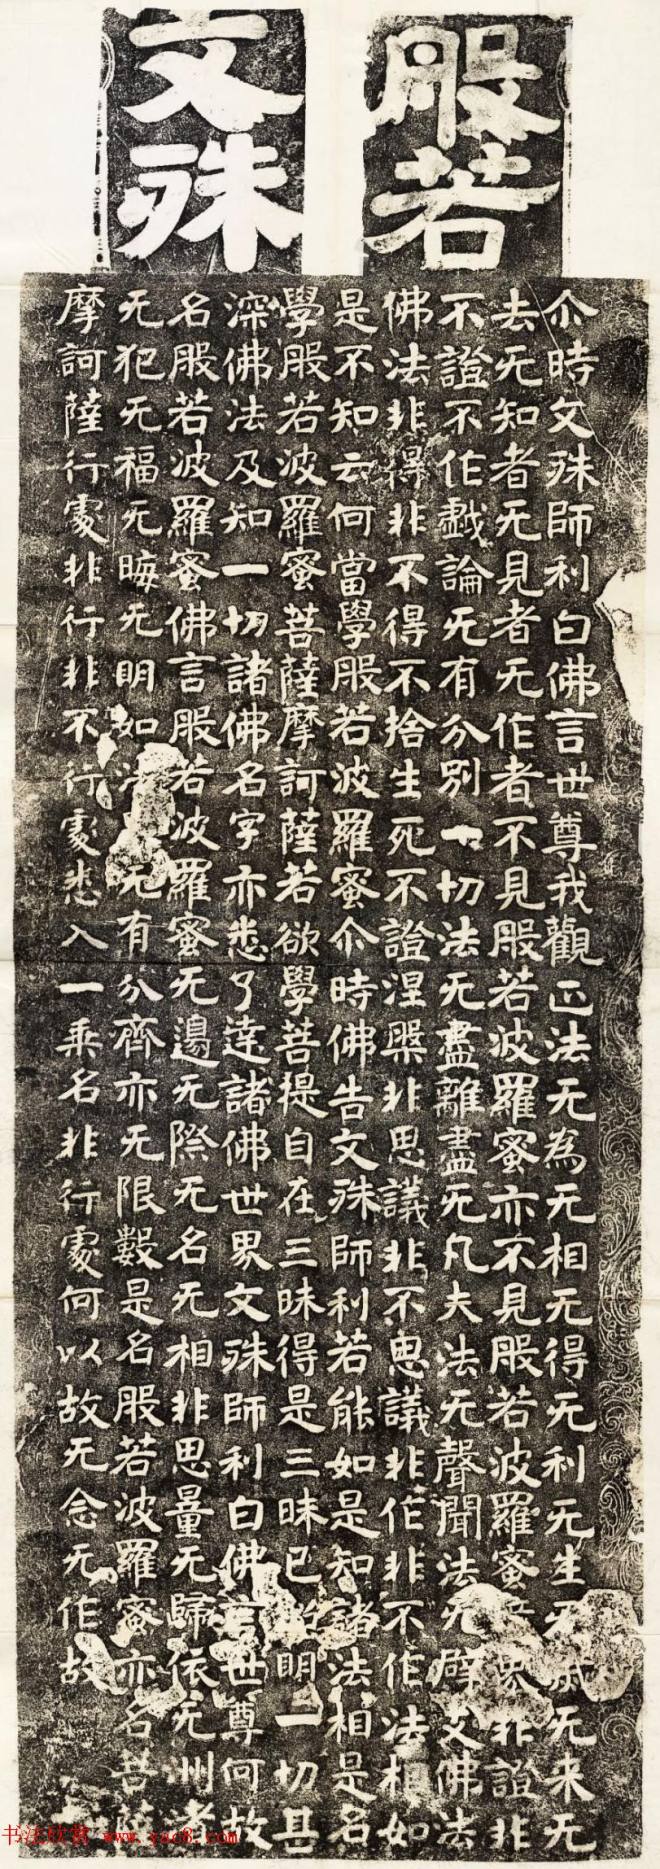 般若
文殊
尒時文殊師利白佛言世尊我觀正法无為无相无得无利无生无来无
去无知者无見者无作者不見般若波羅蜜亦不見般若波羅蜜界非證非
不證不作戲論无有分別一切法无盡離盡无凡夫法无聲聞法无辟支佛法
佛法非得非不得不捨生死不證涅槃非思議非不思議非作非不作法相如
是不知云何當學般若波羅蜜尒時佛告文殊師利若能如是知諸法相是名
學般若波羅蜜菩薩摩訶薩若欲學菩提自在三昧得是三昧已明一切甚
深佛法及知一切諸佛名字亦悉了達諸佛世界文殊師利白佛言世尊何故
名般若波羅蜜佛言般若波羅蜜无邊无際无名无相非思量无歸依无洲渚
无犯无福无晦无明如法无有分齊亦无限數是名般若波羅蜜亦名菩薩
摩訶薩行處非行非不行處悉入一乘名非行處何以故无念无作故
书法欣赏 www.yac8.com